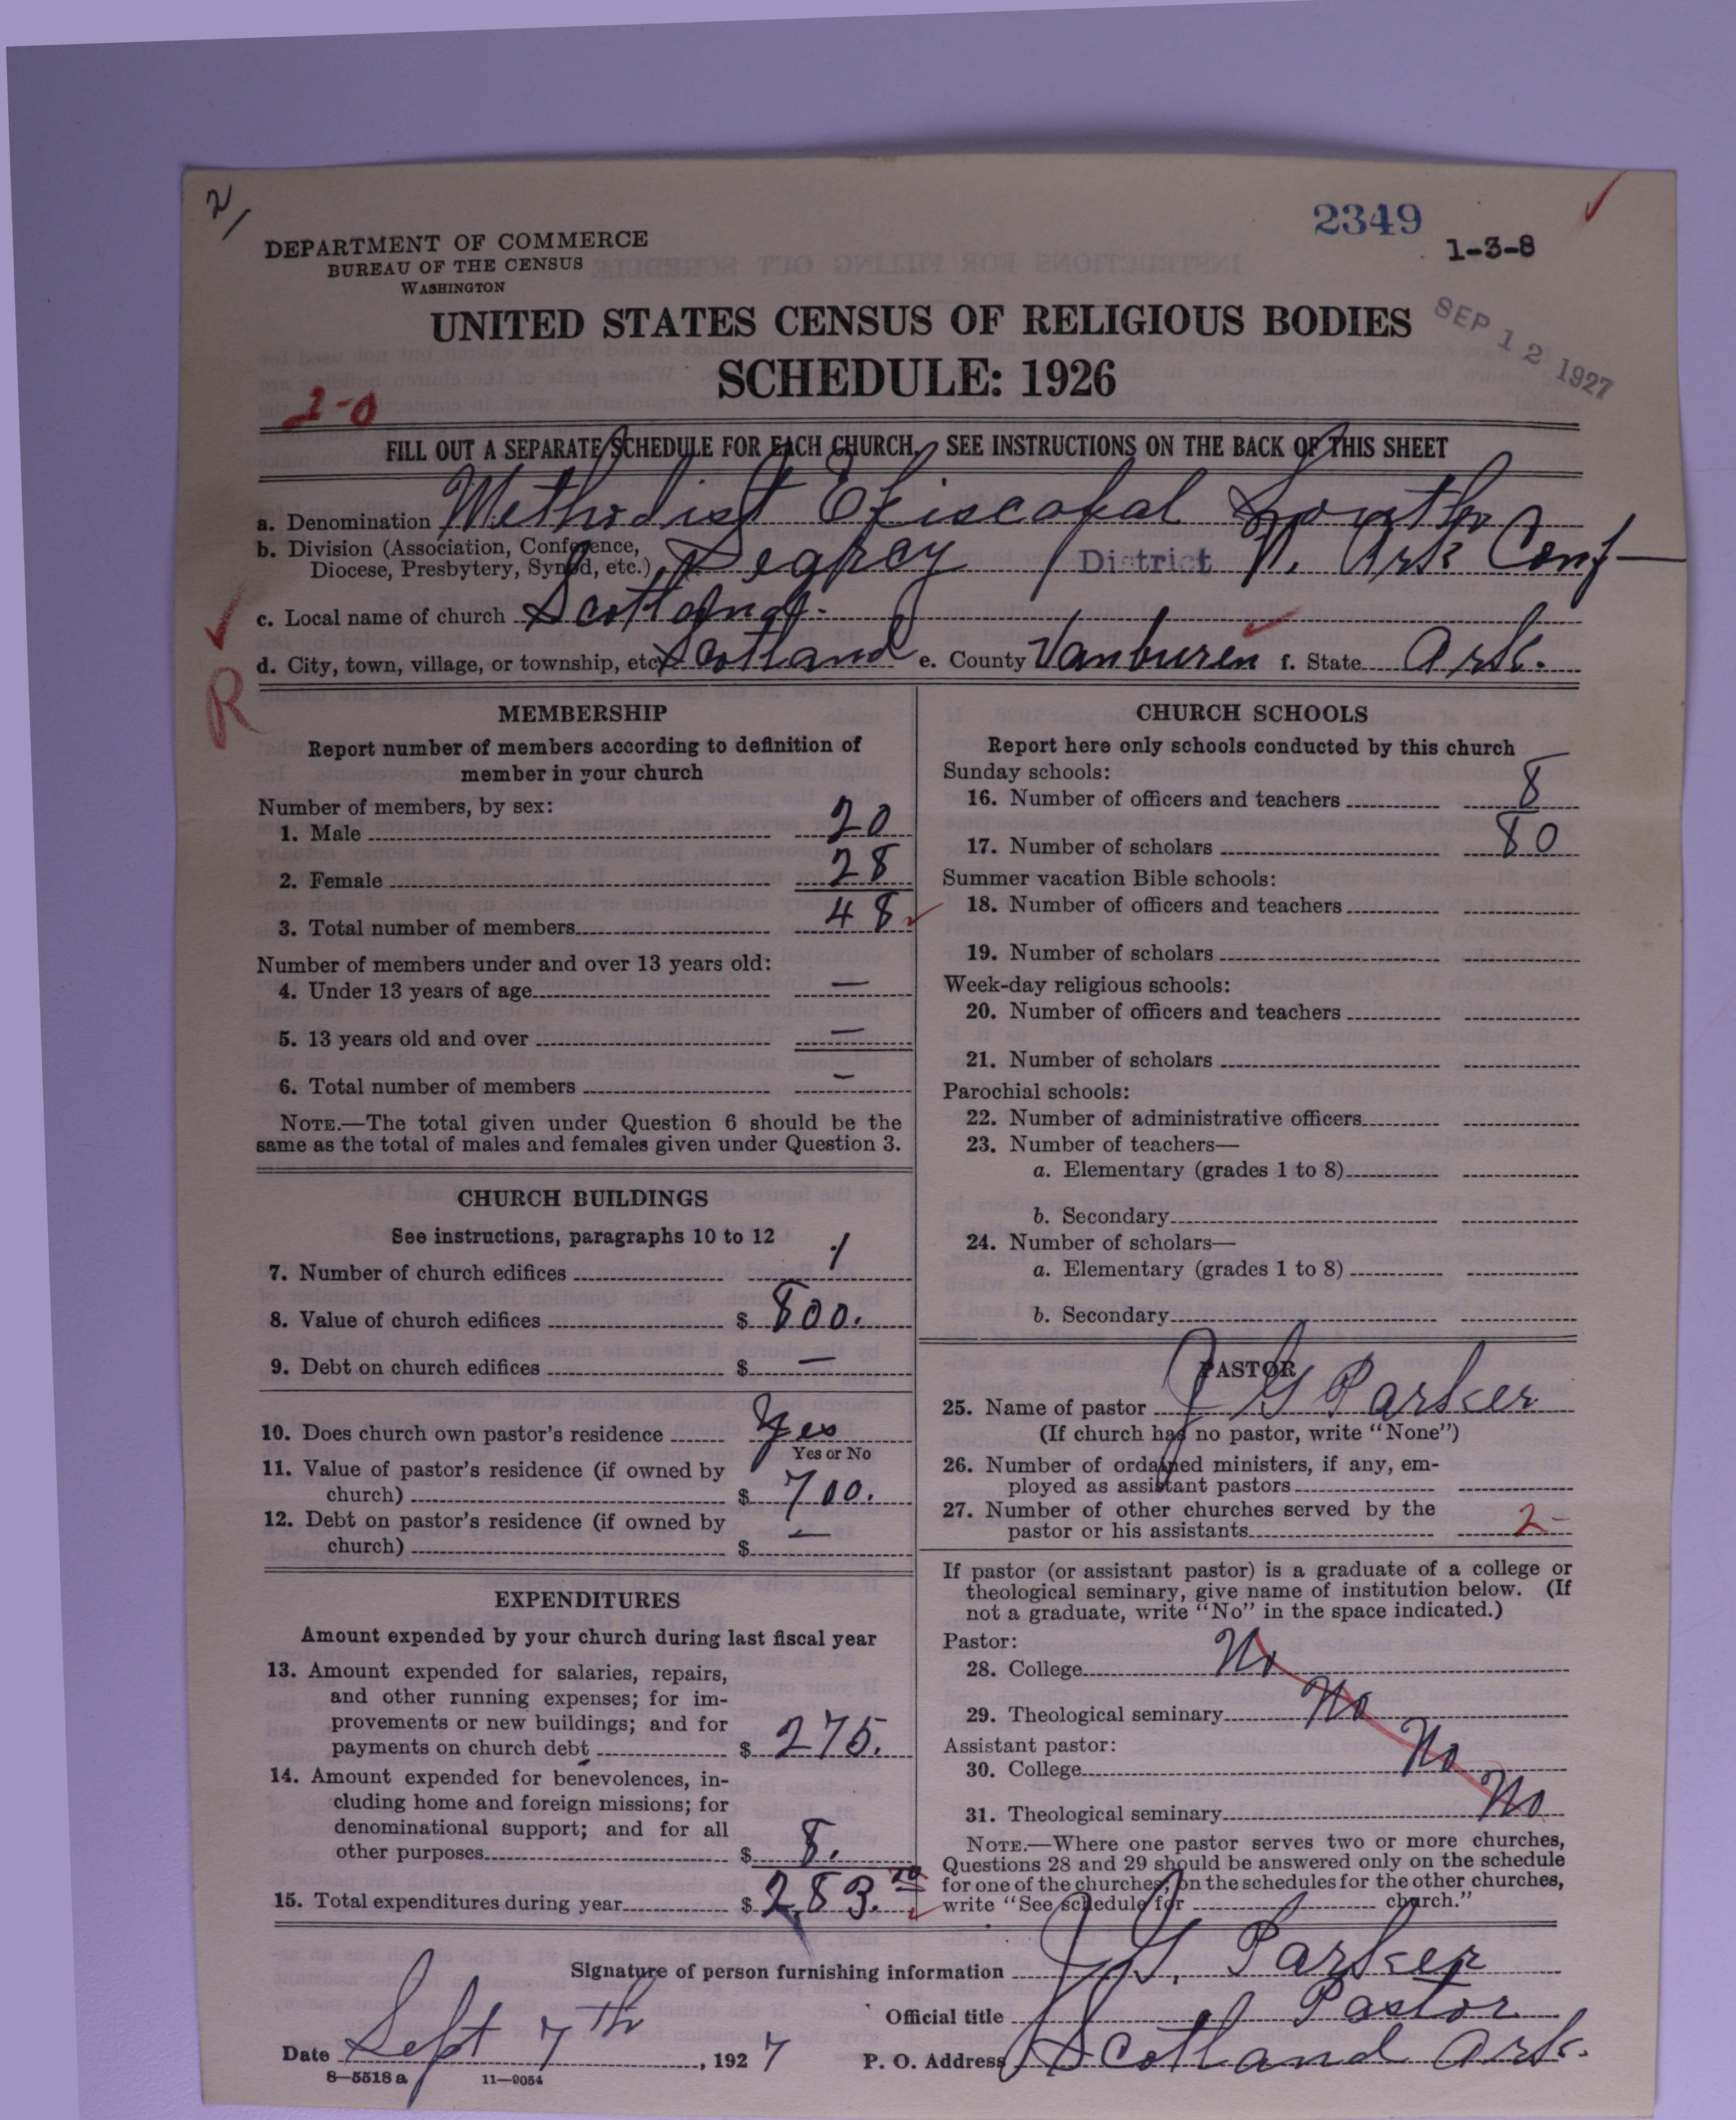 2/
2349
1-3-8
DEPARTMENT OF COMMERCE
BUREAU OF THE CENSUS
WASHINGTON
UNITED STATES CENSUS OF RELIGIOUS BODIES
SCHEDULE: 1926
SEP 12 1927
FILL OUT A SEPARATE SCHEDULE FOR EACH CHURCH. SEE INSTRUCTIONS ON THE BACK OF THIS SHEET
a. Denomination Methodist Episcopal South
b. Division (Association, Conference,
Diocese, Presbytery, Synod, etc.) District N. Ark Conf
c. Local name of church Scotland.
d. City, town, village, or township, etc. Scotland e. County Vanburen f. State Ark.
R
MEMBERSHIP
Report number of members according to definition of
member in your church
Number of members, by sex:
1. Male 20
2. Female 28
3. Total number of members 48
Number of members under and over 13 years old:
4. Under 13 years of age —
5. 13 years old and over —
6. Total number of members -
NOTE.—The total given under Question 6 should be the
same as the total of males and females given under Question 3.
CHURCH BUILDINGS
See instructions, paragraphs 10 to 12
7. Number of church edifices 1
8. Value of church edifices $ 800.
9. Debt on church edifices $ —
10. Does church own pastor's residence Yes
Yes or No
11. Value of pastor's residence (if owned by
church) $ 700.
12. Debt on pastor's residence (if owned by
church) $ —
EXPENDITURES
Amount expended by your church during last fiscal year
13. Amount expended for salaries, repairs,
and other running expenses; for im-
provements or new buildings; and for
payments on church debt $ 275.
14. Amount expended for benevolences, in-
cluding home and foreign missions; for
denominational support; and for all
other purposes $ 8.
15. Total expenditures during year $ 283.
CHURCH SCHOOLS
Report here only schools conducted by this church
Sunday schools:
16. Number of officers and teachers 8
17. Number of scholars 80
Summer vacation Bible schools:
18. Number of officers and teachers
19. Number of scholars
Week-day religious schools:
20. Number of officers and teachers
21. Number of scholars
Parochial schools:
22. Number of administrative officers
23. Number of teachers—
a. Elementary (grades 1 to 8)
b. Secondary
24. Number of scholars—
a. Elementary (grades 1 to 8)
b. Secondary
PASTOR
25. Name of pastor J G Parker
(If church has no pastor, write "None")
26. Number of ordained ministers, if any, em-
ployed as assistant pastors
27. Number of other churches served by the
pastor or his assistants 2-
If pastor (or assistant pastor) is a graduate of a college or
theological seminary, give name of institution below. (If
not a graduate, write "No" in the space indicated.)
Pastor:
28. College No
29. Theological seminary No
Assistant pastor:
30. College No
31. Theological seminary No
NOTE.—Where one pastor serves two or more churches,
Questions 28 and 29 should be answered only on the schedule
for one of the churches; on the schedules for the other churches,
write "See schedule for church."
Signature of person furnishing information J. G. Parker
Official title Pastor
Date Sept 7th, 1927 P. O. Address Scotland Ark.
8—5518 a 11—9054